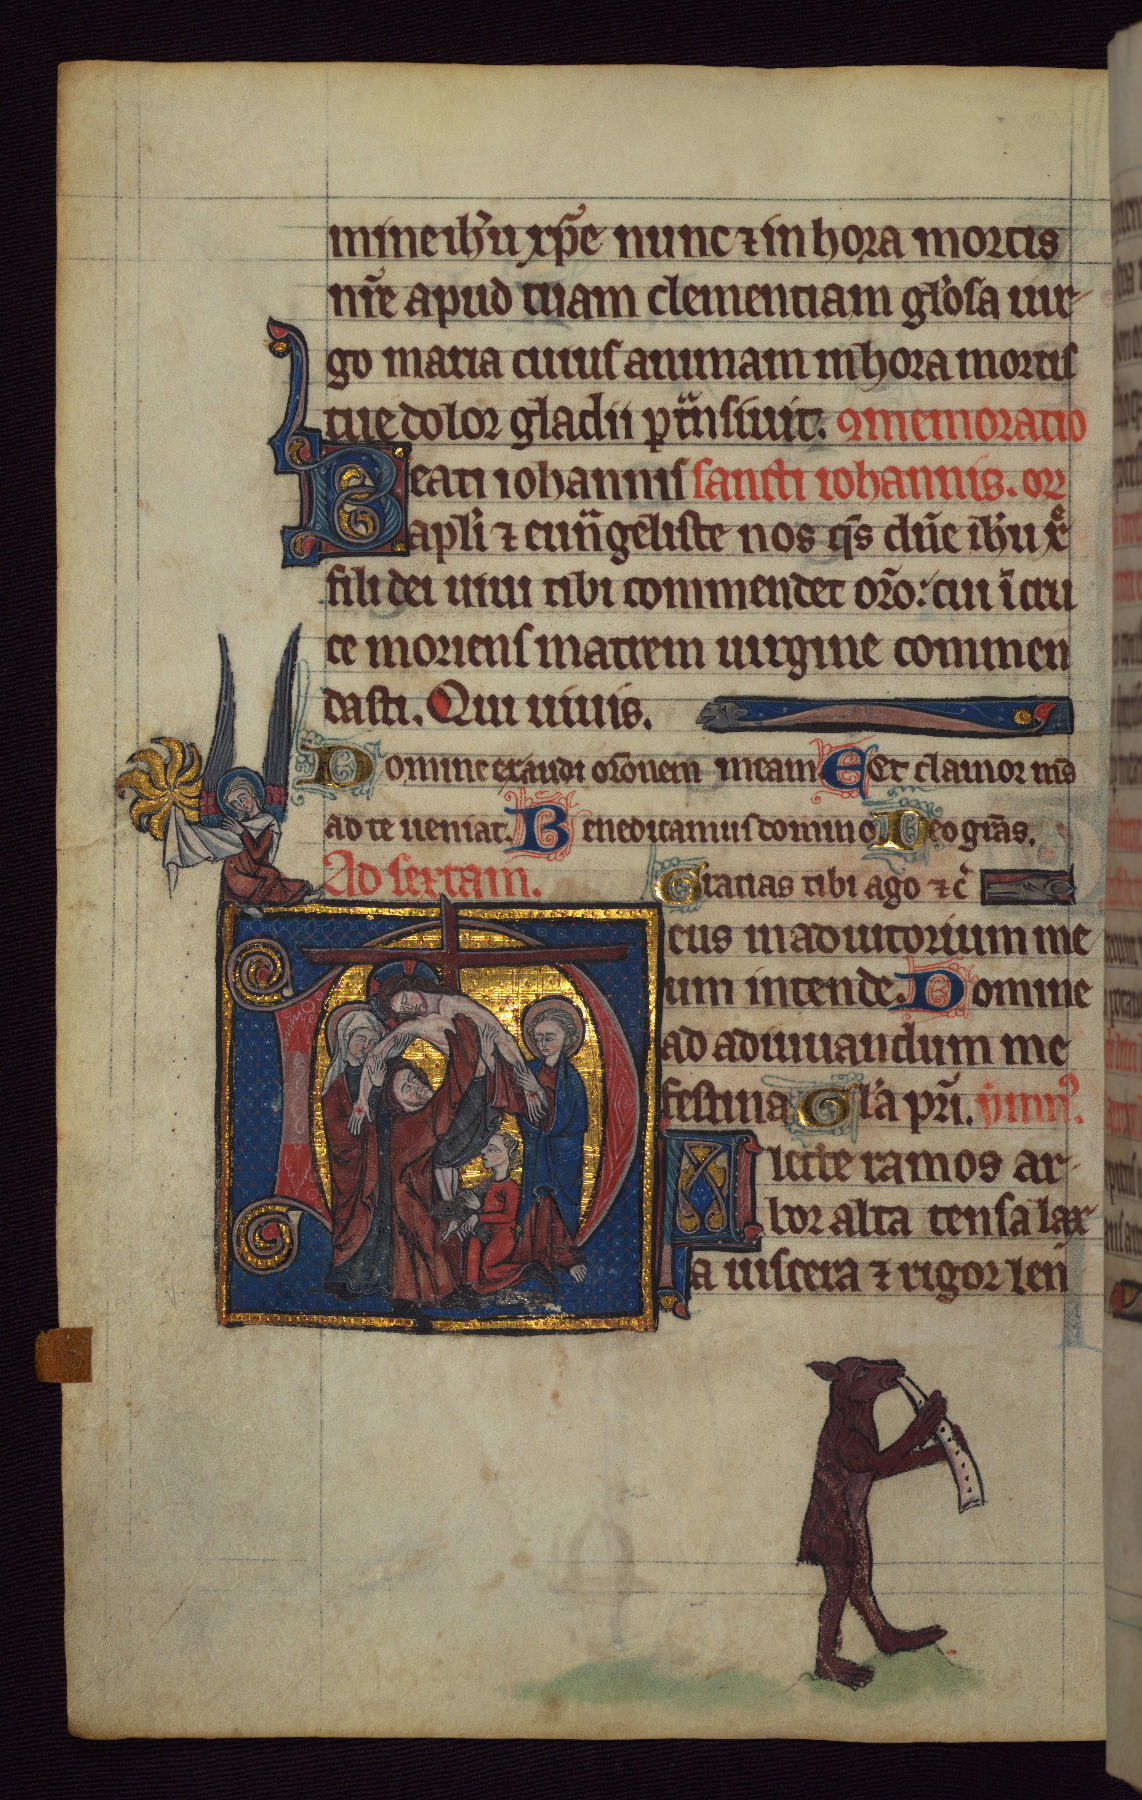 mine ih̄u xp̄e nunc ⁊ in hora mortis
nr̄e apud tuam clementiam gl̓osa uir
go maria cuius animam in hora mortis
tue dolor gladii ꝑtͣnsiuit. ꝯmemoratio
Beati iohannis sancti iohannis. or
apl̓i ⁊ euuͣngeliste nos q̄s dn̄e ih̄u xͤ
fili dei uiui tibi commendet or̄o: cui ī cru
ce moriens matrem uirgine commen
dasti. Qui uiuis.
Domine exaudi or̄onem meam Et clamor m̄s
ad te ueniat. Benedicamus domino Deo gr̄as.
Ad sextam. Gracias tibi ago ⁊ c̓
Deus in adiutorium me
um intende. Domine
ad adiuuandum me
festina Gl̓a pr̄i. ymn᷒.
Flecte ramos ar
bor alta tensa lax
a uiscera ⁊ rigor len